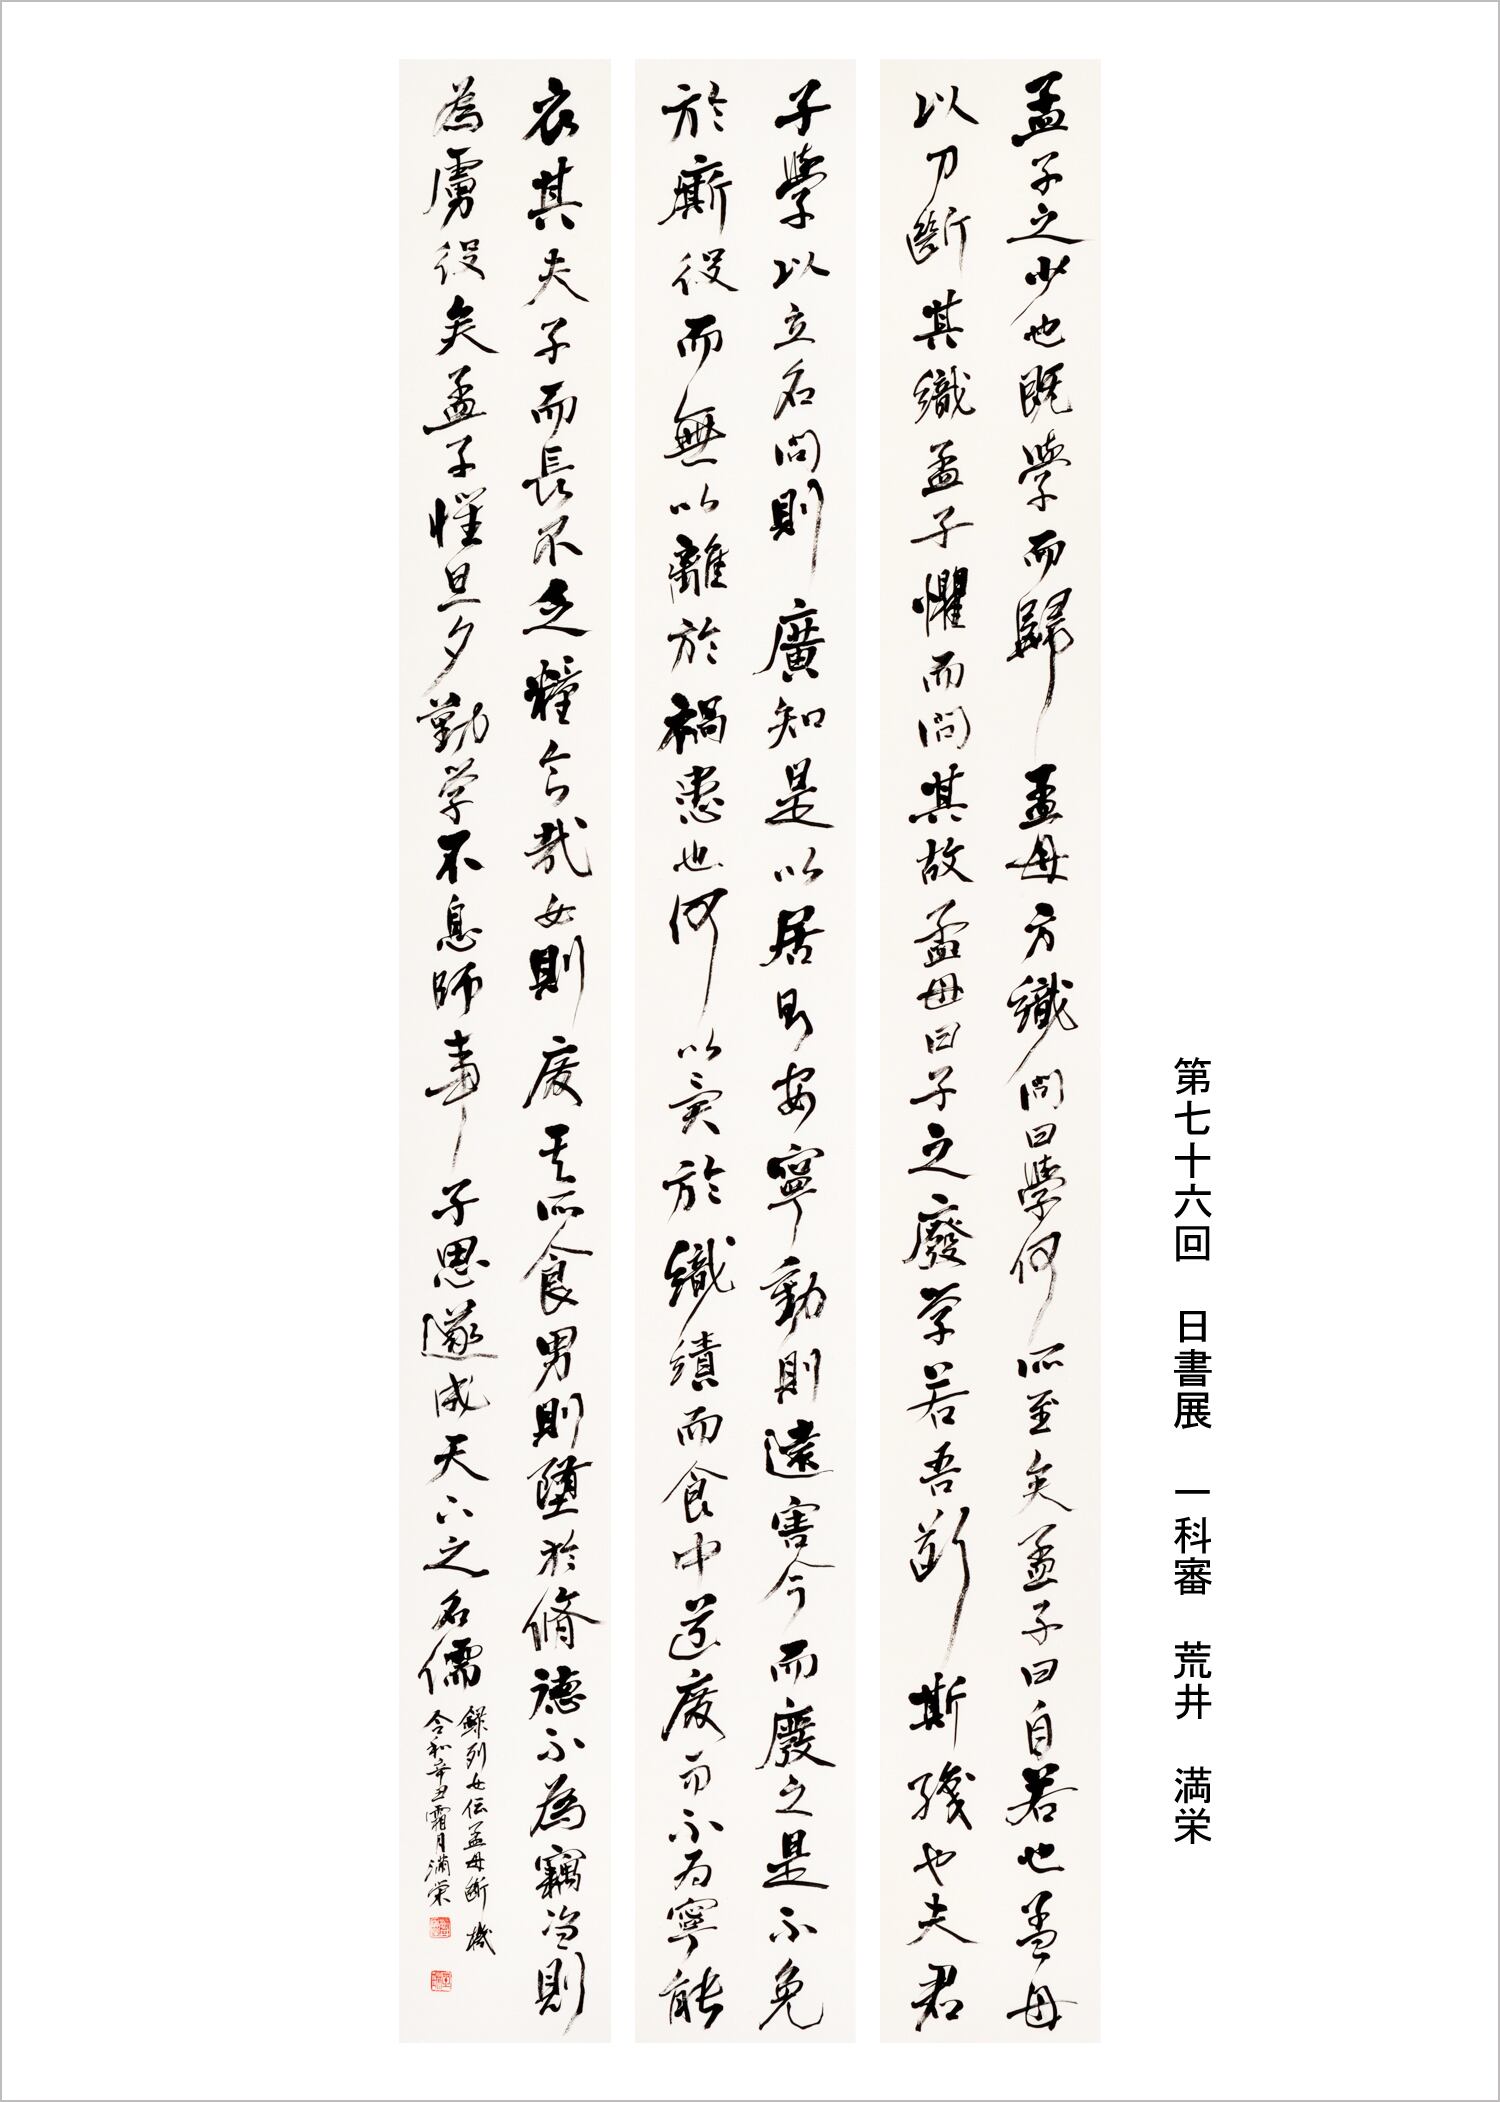 第七十六回　日書展　一科審　荒井　満栄
孟子之少也既學而歸孟母方織問曰學何所至矣孟子曰自若也孟母
以刀斷其織孟子懼而問其故孟母曰子之廢学若吾断斯織也夫君
子學以立名問則廣知是以居則安寧動則遠害今而廢之是不免
於廝役而無以離於禍患也何以異於織績而食中道廃而不為寧能
衣其夫子而長不乏糧食哉女則廃其所食男則墮於脩德不為竊盗則
為虜役矣孟子懼旦夕勤学不息師事子思遂成天下之名儒
錄列女伝孟母断機
令和辛丑霜月満栄